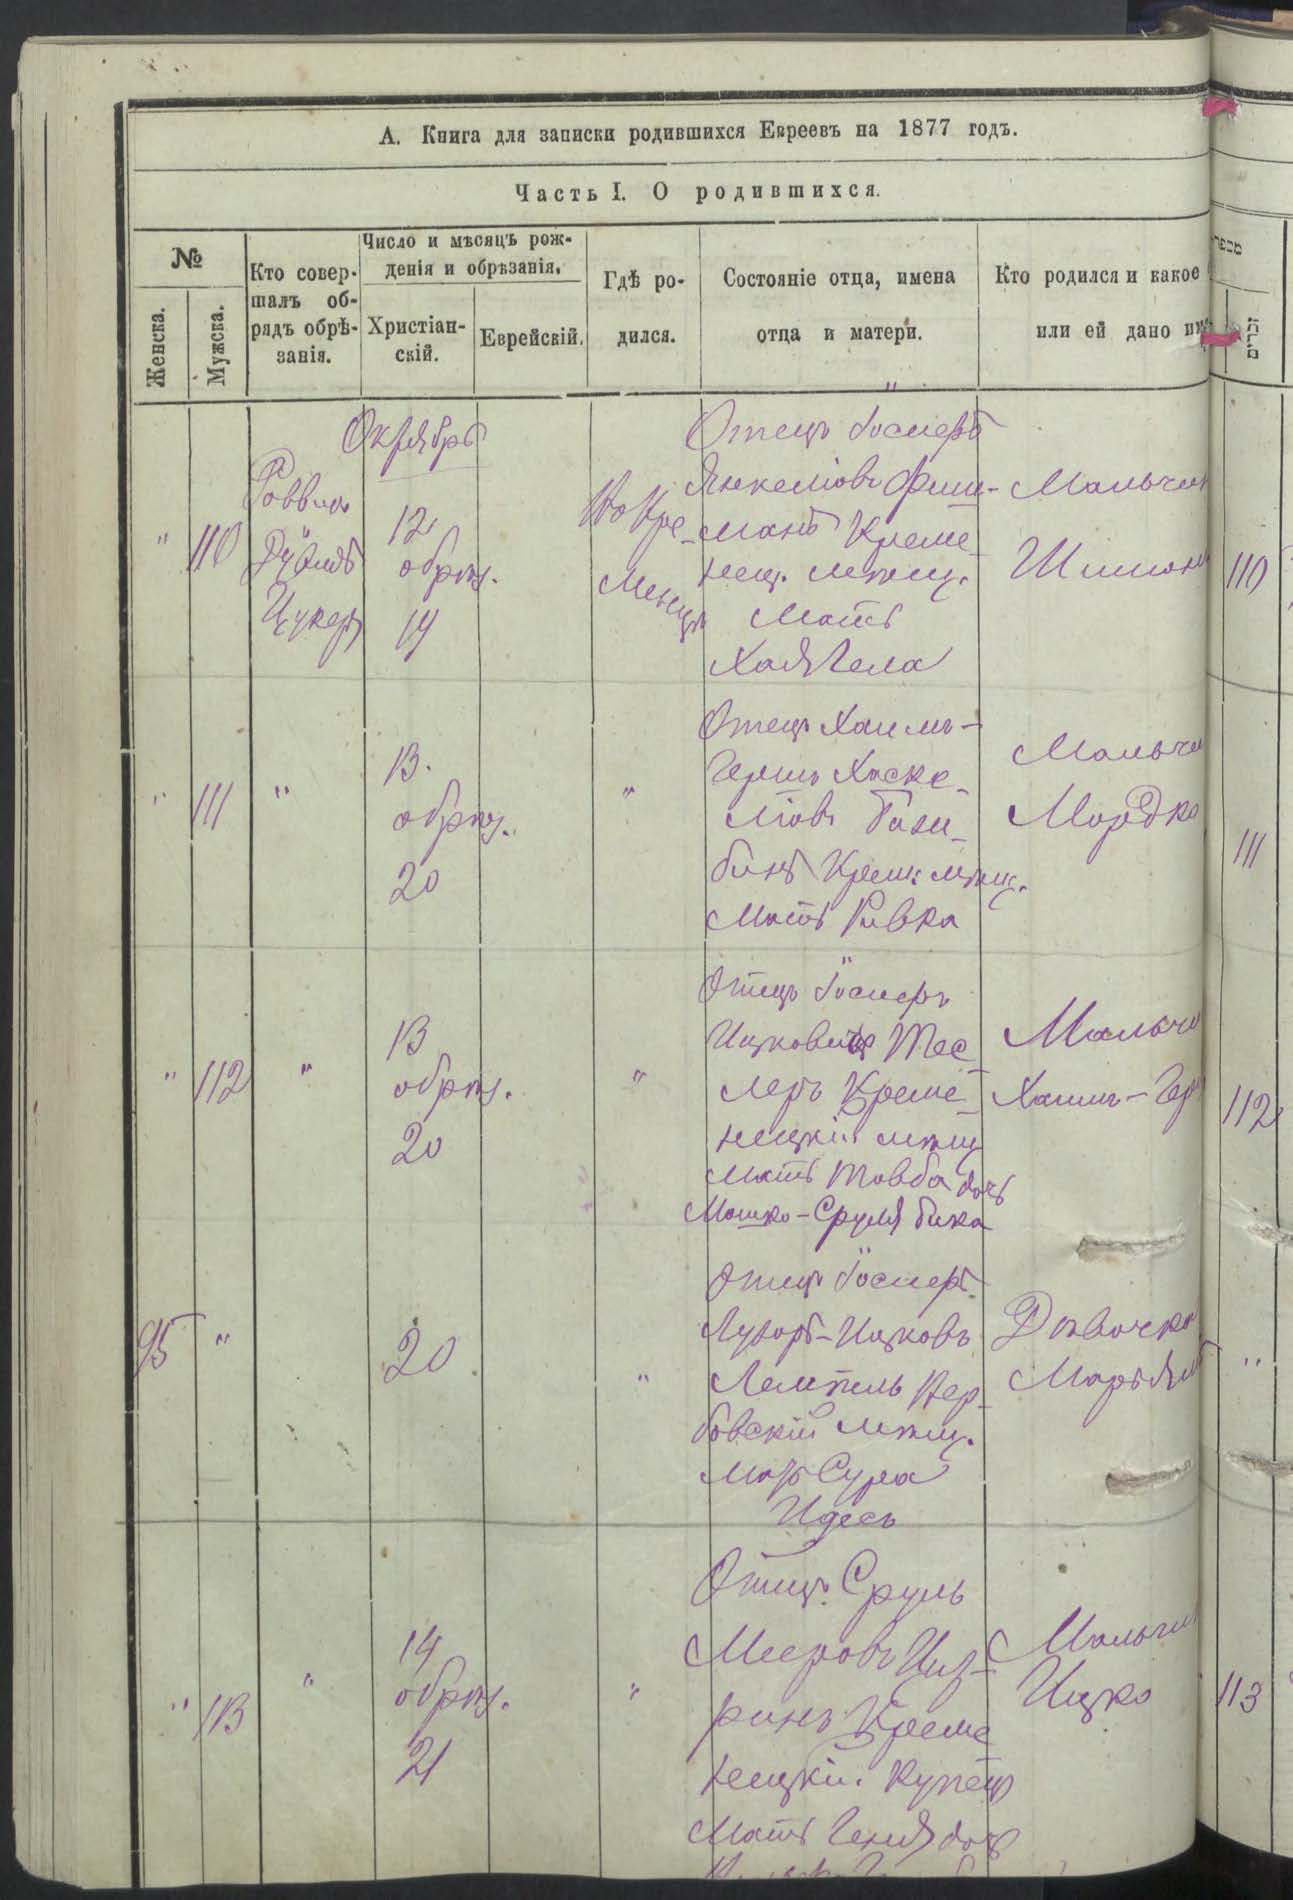 А. Книга для записки родившихся Евреевъ на 1877 годъ.
Часть I. О родившихся.
№
Женска.
Мужска.
Кто совер-
шалъ об-
рядъ обрѣ-
занія.
Число и мѣсяцъ рож-
денія и обрѣзанія.
Христіан-
скій.
Еврейскій.
Гдѣ ро-
дился.
Состояніе отца, имена
отца и матери.
Кто родился и какое
или ей дано им
זכרים
"
110
Раввинъ
Цукеръ
Октябрь
12
обрѣз.
19
Во Кре-
менцѣ
Отецъ Іосперъ
Янкеліовъ Фиш-
манъ Креме-
нец. мѣщ.
Мать
Хая Гела
Мальчик
Шимон
110
"
111
"
13.
обрѣз.
20
"
Отецъ Хаимъ-
Гершъ Хаске-
ліовъ
Крем. мѣщ.
Мать Ривка
Мальчи
Мордко
111
"
112
"
13
обрѣз.
20
"
Отецъ Іосперъ
Ицковичъ Тес-
леръ Креме-
нецкій мѣщ
Мать Товба дочь
Мошко-Сруля Бика
Мальчи
Хаимъ-Гер
112
95
"
20
"
Отецъ Іосперъ
Лузоръ-Ицковъ
Лемпель Вер-
бовскій мѣщ.
Мать Сура
Идесъ
Дѣвочка
Марьям
"
"
113
"
14
обрѣз.
21
"
Отецъ Сруль
Мееровъ Циз-
ринъ Креме
нецкій купецъ
Мать Геня дочь
Мальчи
Ицко
113